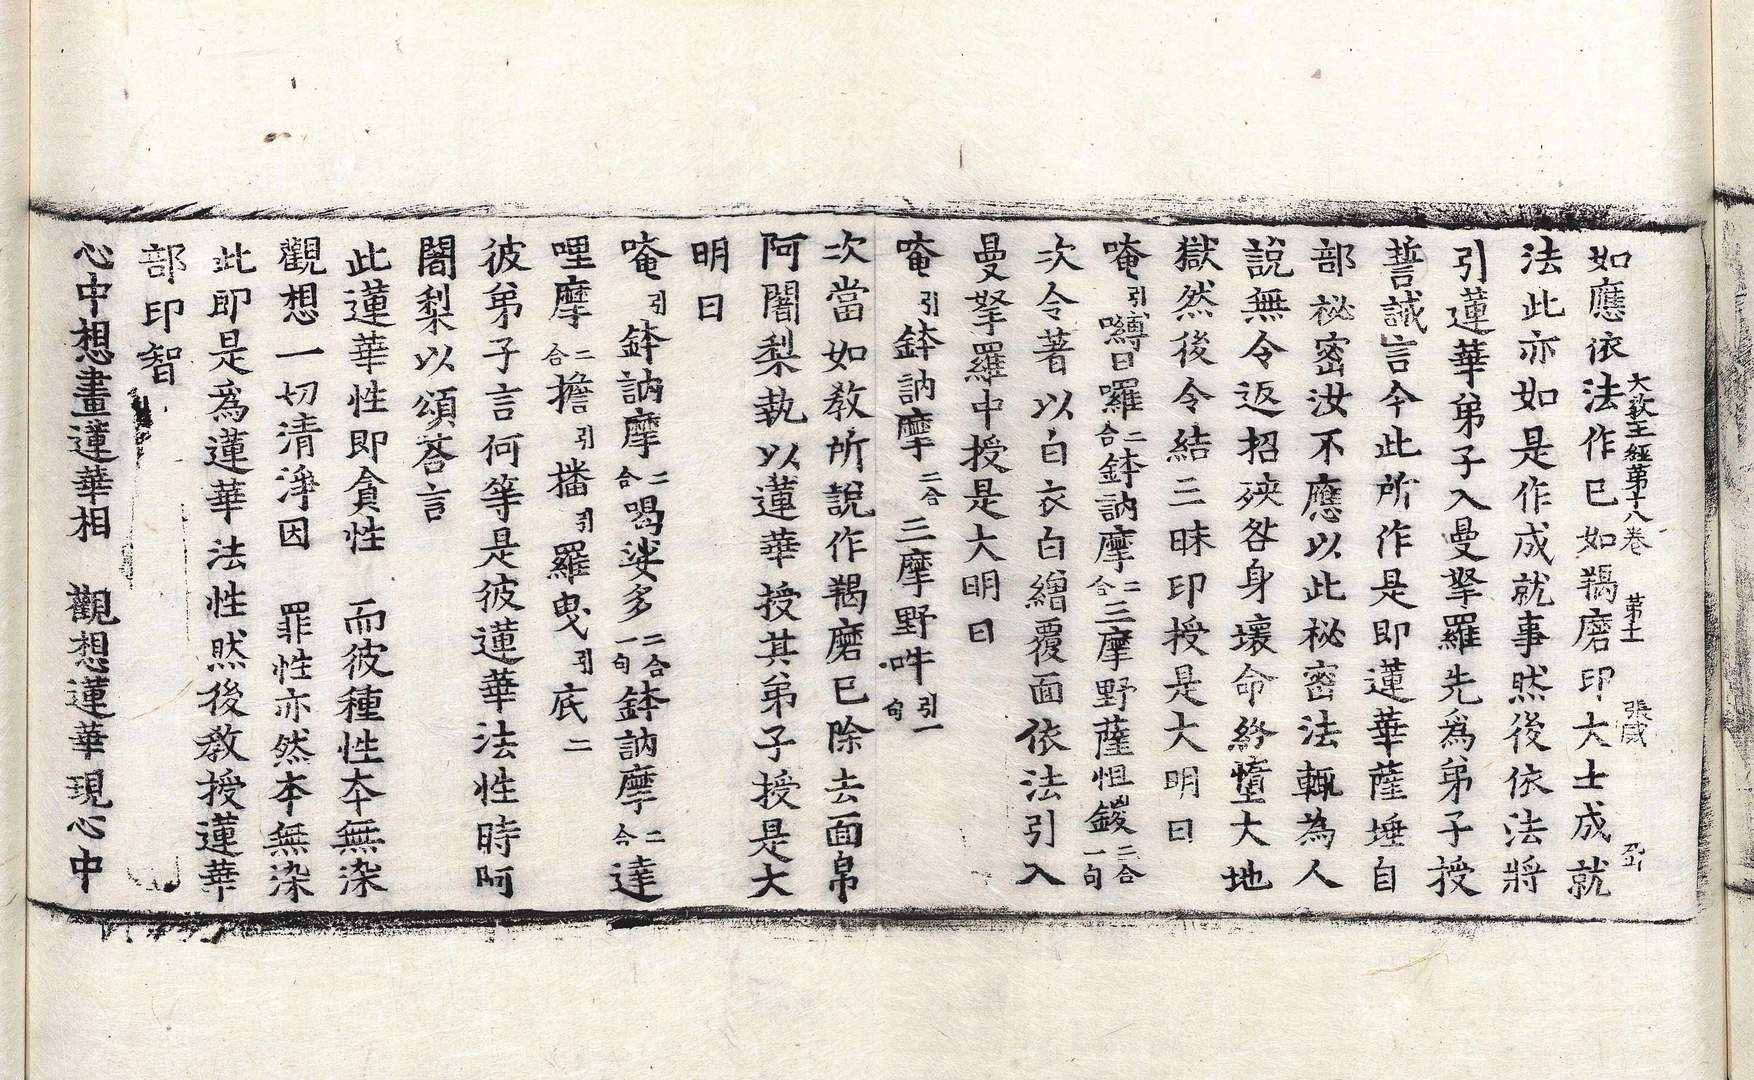 大教王經第十八卷 第十二 張 成
如應依法作已如羯磨印大士成就
法此亦如是作成就事然後依法將
引蓮華弟子入曼拏羅先爲弟子授
誓誡言今此所作是即蓮華薩埵自
部祕密汝不應以此祕密法輒為人
說無令返招殃咎身壞命終墮大地
獄然後令結三昧印授是大明曰
唵引嚩日囉二合鉢訥摩二合三摩野薩怛鑁三合一句
次令著以白衣白繒覆面依法引入
曼拏羅中授是大明曰
唵引鉢訥摩二合三摩野吽引一句
次當如教所說作羯磨已除去面帛
阿闍梨執以蓮華授其弟子授是大
明曰
唵引鉢訥摩二合喝娑多二合一句鉢訥摩二合達
哩摩二合擔引播引羅曳引底二
彼弟子言何等是彼蓮華法性時阿
闍梨以頌答言
此蓮華性即貪性 而彼種性本無染
觀想一切清淨因 罪性亦然本無染
此即是爲蓮華法性然後教授蓮華
部印智
心中想畫蓮華相 觀想蓮華現心中